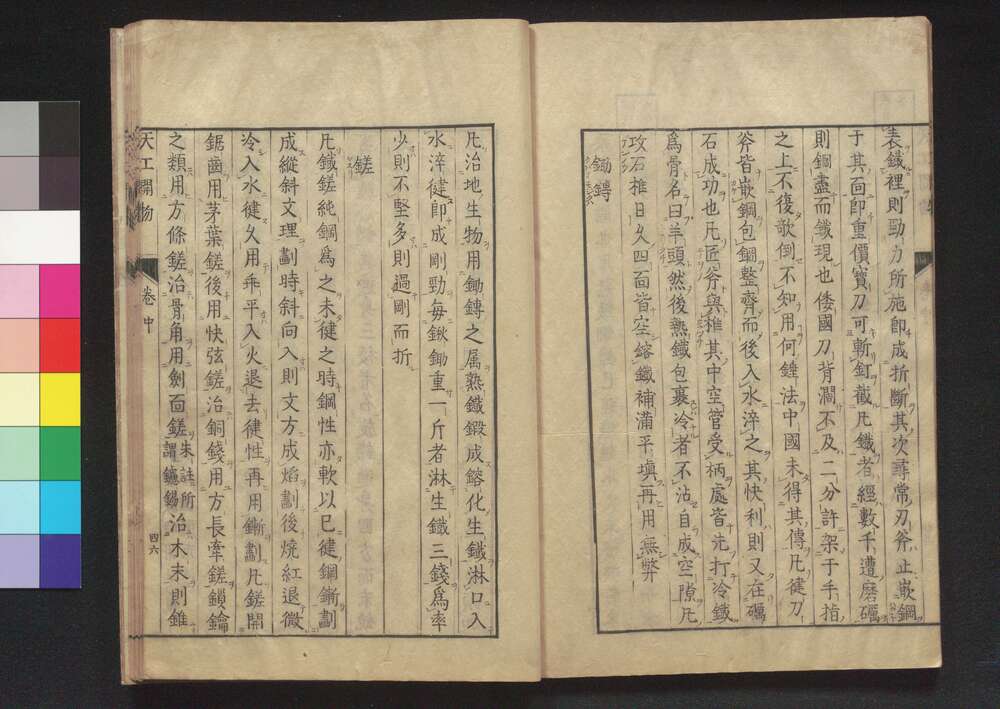 表鐵裡則勁力所施即成折斷其次尋常刀斧止嵌鋼
于其面即重價寶刀可斬釘截凡鐵者經數千遭磨礪
則鋼盡而鐵現也倭國刀背濶不及二分許架于手指
之上不復欹倒不知用何錘法中國未得其傳凡健刀
斧皆嵌鋼包鋼整齊而後入水淬之其快利則又在礪
石成功也凡匠斧與椎其中空管受柄處皆先打冷鐵
爲骨名曰羊頭然後熱鐵包裹冷者不沾自成空隙凡
攻石椎日久四面皆空鎔鐵補滿平塡再用無弊
鋤鎛
凡治地生物用鋤鎛之属熟鐵鍛成鎔化生鐵淋口入
水淬健即成剛勁每鍬鋤重一斤者淋生鐵三錢爲率
少則不堅多則過剛而折
鎈
凡鐵鎈純鋼爲之未健之時鋼性亦軟以已健鋼鏨劃
成縱斜文理劃時斜向入則文方成焰劃後燒紅退微
冷入水健久用乖平入火退去健性再用鏨劃凡鎈開
鋸齒用茅葉鎈後用快弦鎈治銅錢用方長牽鎈鎖鑰
之類用方條鎈治骨角用劍面鎈朱註所謂鑢鐋治木末則錐
天工開物 卷中 四六